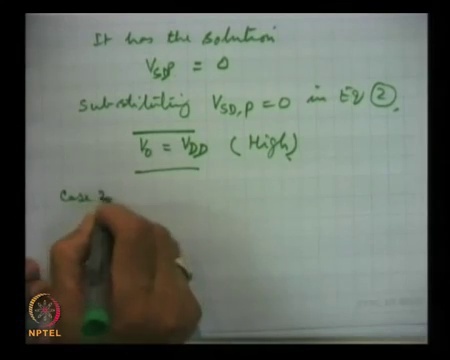 It has the solution
VSDP = 0
Substituting VSD,P = 0 in Eq 2.
V0 = VDD (High)
Case 2
NPTEL